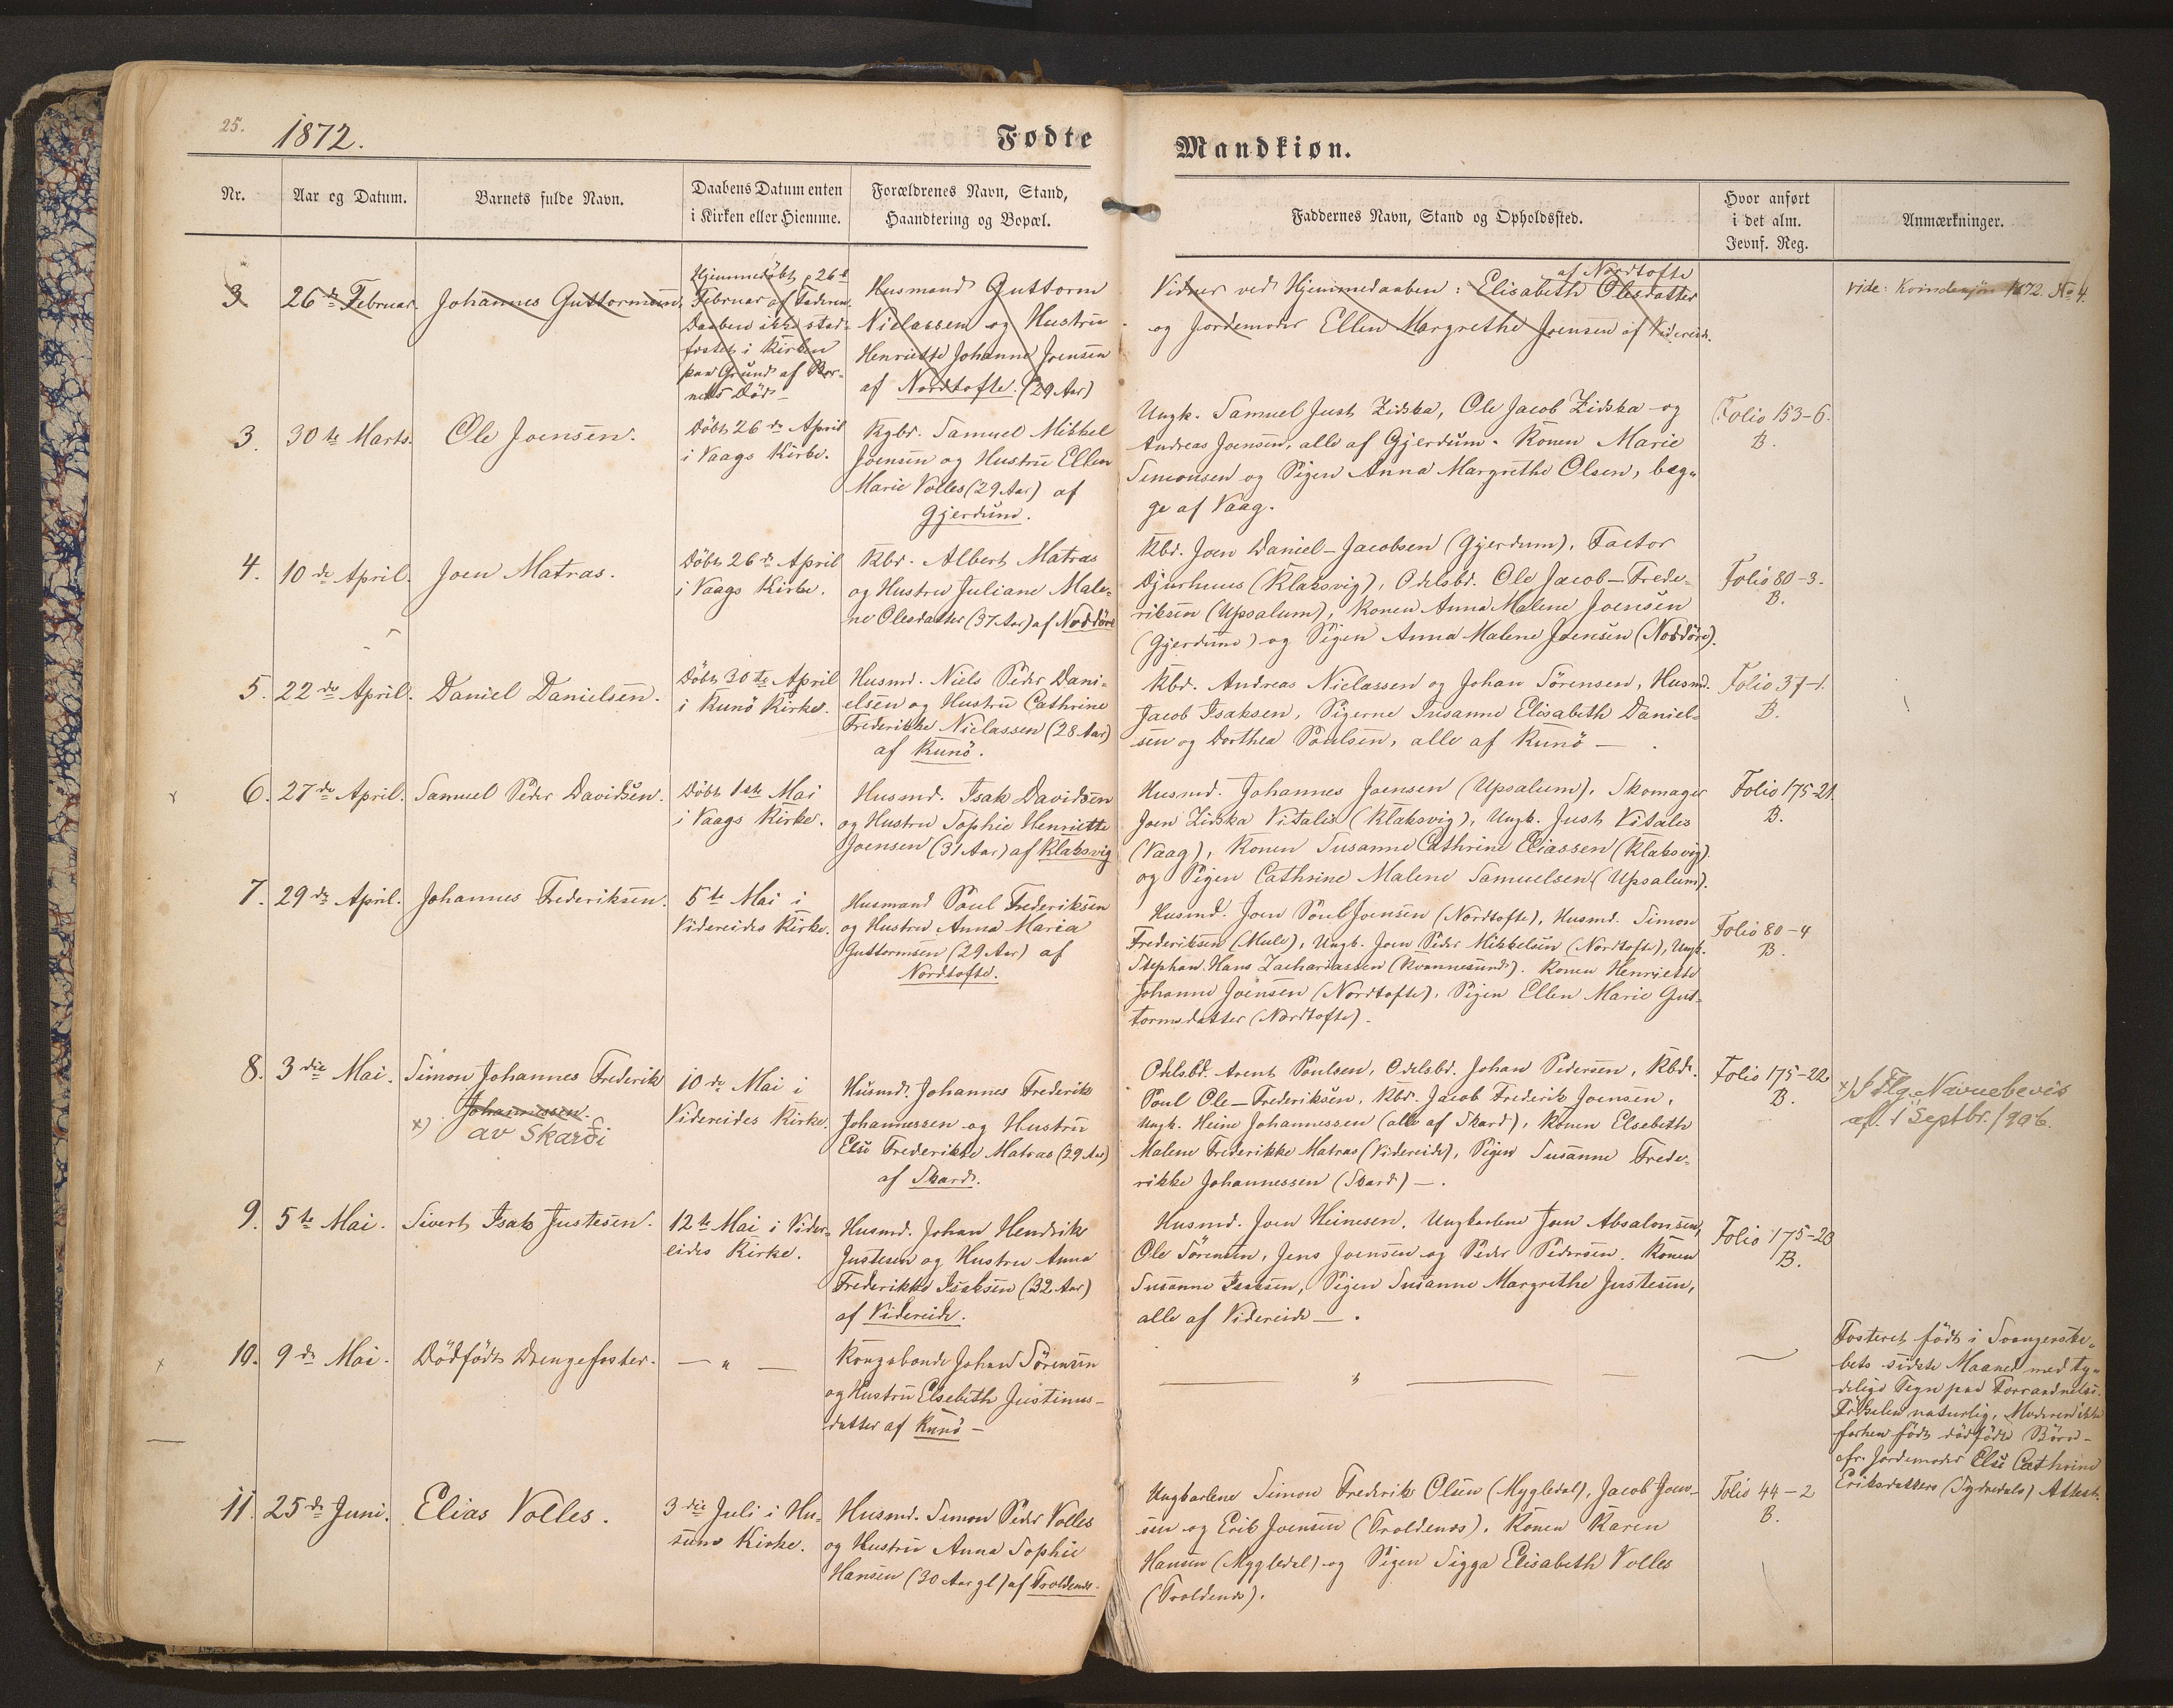 25.
1872.
Fødte
Mandkiøn.
Nr.
Aar og Datum.
Barnets fulde Navn.
Daabens Datum enten
i Kirken eller Hiemme.
Forældrenes Navn, Stand,
Haandtering og Bopæl.
Faddernes Navn, Stand og Opholdssted.
Hvor anført
i det alm.
Jevnf. Reg.
Anmærkninger.
3
26de Februar.
Johannes Guttormsen.
Hjemmedøbt 26de
Februar af Faderen.
Daaben ikke stad-
fæstet i Kirken
paa Grund af Bar-
nets Død.
Husmand Guttorm
Niclassen og Hustru
Henriette Johanne Joensen
af Nordtofte. (29 Aar)
af Nordtofte
Vidner ved Hjemmedaaben: Elisabeth Olesdatter
og Jordemoder Ellen Margrethe Joensen af Videreide.
vide: Kvindekjøn 1872. No 4.
3.
30te Marts.
Ole Joensen.
Döbt 26de April
i Vaags Kirke.
Kgbd. Samuel Mikkel
Joensen og Hustru Ellen
Marie Volles (29 Aar) af
Gjerdum.
Ungk. Samuel Just Zidska, Ole Jacob Zidska og
Andreas Joensen, alle af Gjerdum. Konen Marie
Simonsen og Pigen Anna Margrethe Olsen, beg-
ge af Vaag.
Folio 153-6.
B.
4.
10de April.
Joen Matras.
Döbt 26de April
i Vaags Kirke.
Kbd. Albert Matras
og Hustru Juliane Male-
ne Olesdatter (37 Aar) af Noddöre
Kbd. Joen Daniel-Jacobsen (Gjerdum), Factor
Djurhuus (Klaksvig), Odelsbd. Ole Jacob-Frede-
riksen (Upsalum), Konen Anna Malene Joensen
(Gjerdum) og Pigen Anna Malene Joensen (Noddöre).
Folio 80-3.
B.
5.
22de April.
Daniel Danielsen.
Döbt 30te April
i Kunö Kirke.
Husmd. Niels Peder Dani-
elsen og Hustru Cathrine
Frederikke Niclassen (28 Aar)
af Kunö.
Kbd. Andreas Niclassen og Johan Sörensen, Husmd.
Jacob Isaksen, Pigerne Susanne Elisabeth Daniel-
sen og Dorthea Poulsen, alle af Kunö —.
Folio 37-1.
B.
6.
27de April.
Samuel Peder Davidsen.
Döbt 1ste Mai
i Vaags Kirke.
Husmd. Isak Davidsen
og Hustru Sophie Henriette
Joensen (31 Aar) af Klaksvig
Husmd. Johannes Joensen (Upsalum), Skomager
Joen Zidska Vitalis (Klaksvig), Ungk. Just Vitalis
(Vaag), Konen Susanne Cathrine Eliassen (Klaksvig)
og Pigen Cathrine Malene Samuelsen (Upsalum).
Folio 175-21.
B.
7.
29de April.
Johannes Frederiksen.
5te Mai i
Videreides Kirke.
Husmand Poul Frederiksen
og Hustru Anna Maria
Guttormsen (29 Aar) af
Nordtofte.
Husmd. Joen Poul Joensen (Nordtofte), Husmd. Simon
Frederiksen (Mule), Ungk. Joen Peder Mikkelsen (Nordtofte), Ungk.
Stephan Hans Zachariassen (Kvannesund). Konen Henriette
Johanne Joensen (Nordtofte), Pigen Ellen Marie Gut-
tormsdatter (Nordtofte).
Folio 80-4
B.
8.
3die Mai.
Simon Johannes Frederik
Johannessen.
x) av Skarði
10de Mai i
Videreides Kirke.
Husmd. Johannes Frederik
Johannessen og Hustru
Else Frederikke Matras (29 Aar)
af Skard.
Odelsbd. Arent Poulsen, Odelsbd. Johan Pedersen, Kbd.
Poul Ole-Frederiksen, Kbd. Jacob Frederik Joensen,
Ungk. Heine Johannessen (alle af Skard), Konen Elsebeth
Malene Frederikke Matras (Videreide), Pigen Susanne Frede-
rikke Johannessen (Skard) —.
Folio 175-22
B.
x) I Flg. Navnebevis
af 1 Septbr. 1906.
9.
5te Mai.
Sivert Isak Justesen.
12te Mai i Vider-
eides Kirke.
Husmd. Johan Hendrik
Justesen og Hustru Anna
Frederikke Isaksen (32 Aar)
af Videreide.
Husmd. Joen Heinesen, Ungkarlene Joen Absalonsen,
Ole Sörensen, Jens Joensen og Peder Pedersen. Konen
Susanne Isaksen, Pigen Susanne Margrethe Justesen,
alle af Videreide —.
Folio 175-23
B.
10.
9de Mai.
Dödfödt Drengefoster.
— " —
Kongsbonde Johan Sörensen
og Hustru Elsebeth Justinus-
datter af Kunö —
Fosteret födt i Svangerska-
bets sidste Maaned med ty-
delige Tegn paa Forraadnelse.
Födselen naturlig, Moderen ikke
forhen födt dödfödte Börn —
cfr. Jordemoder Else Cathrine
Eriksdatters (Sydredals) Attest.
11.
25de Juni.
Elias Volles.
3die Juli i Hu-
sum Kirke.
Husmd. Simon Peder Volles
og Hustru Anna Sophie
Hansen (30 Aar gl) af Troldenes.
Ungkarlene Simon Frederik Olsen (Mygledal), Jacob Joen-
sen og Erik Joensen (Troldenes). Konen Karen
Hansen (Mygledal) og Pigen Sigga Elisabeth Volles
(Troldenes).
Folio 44-2
B.